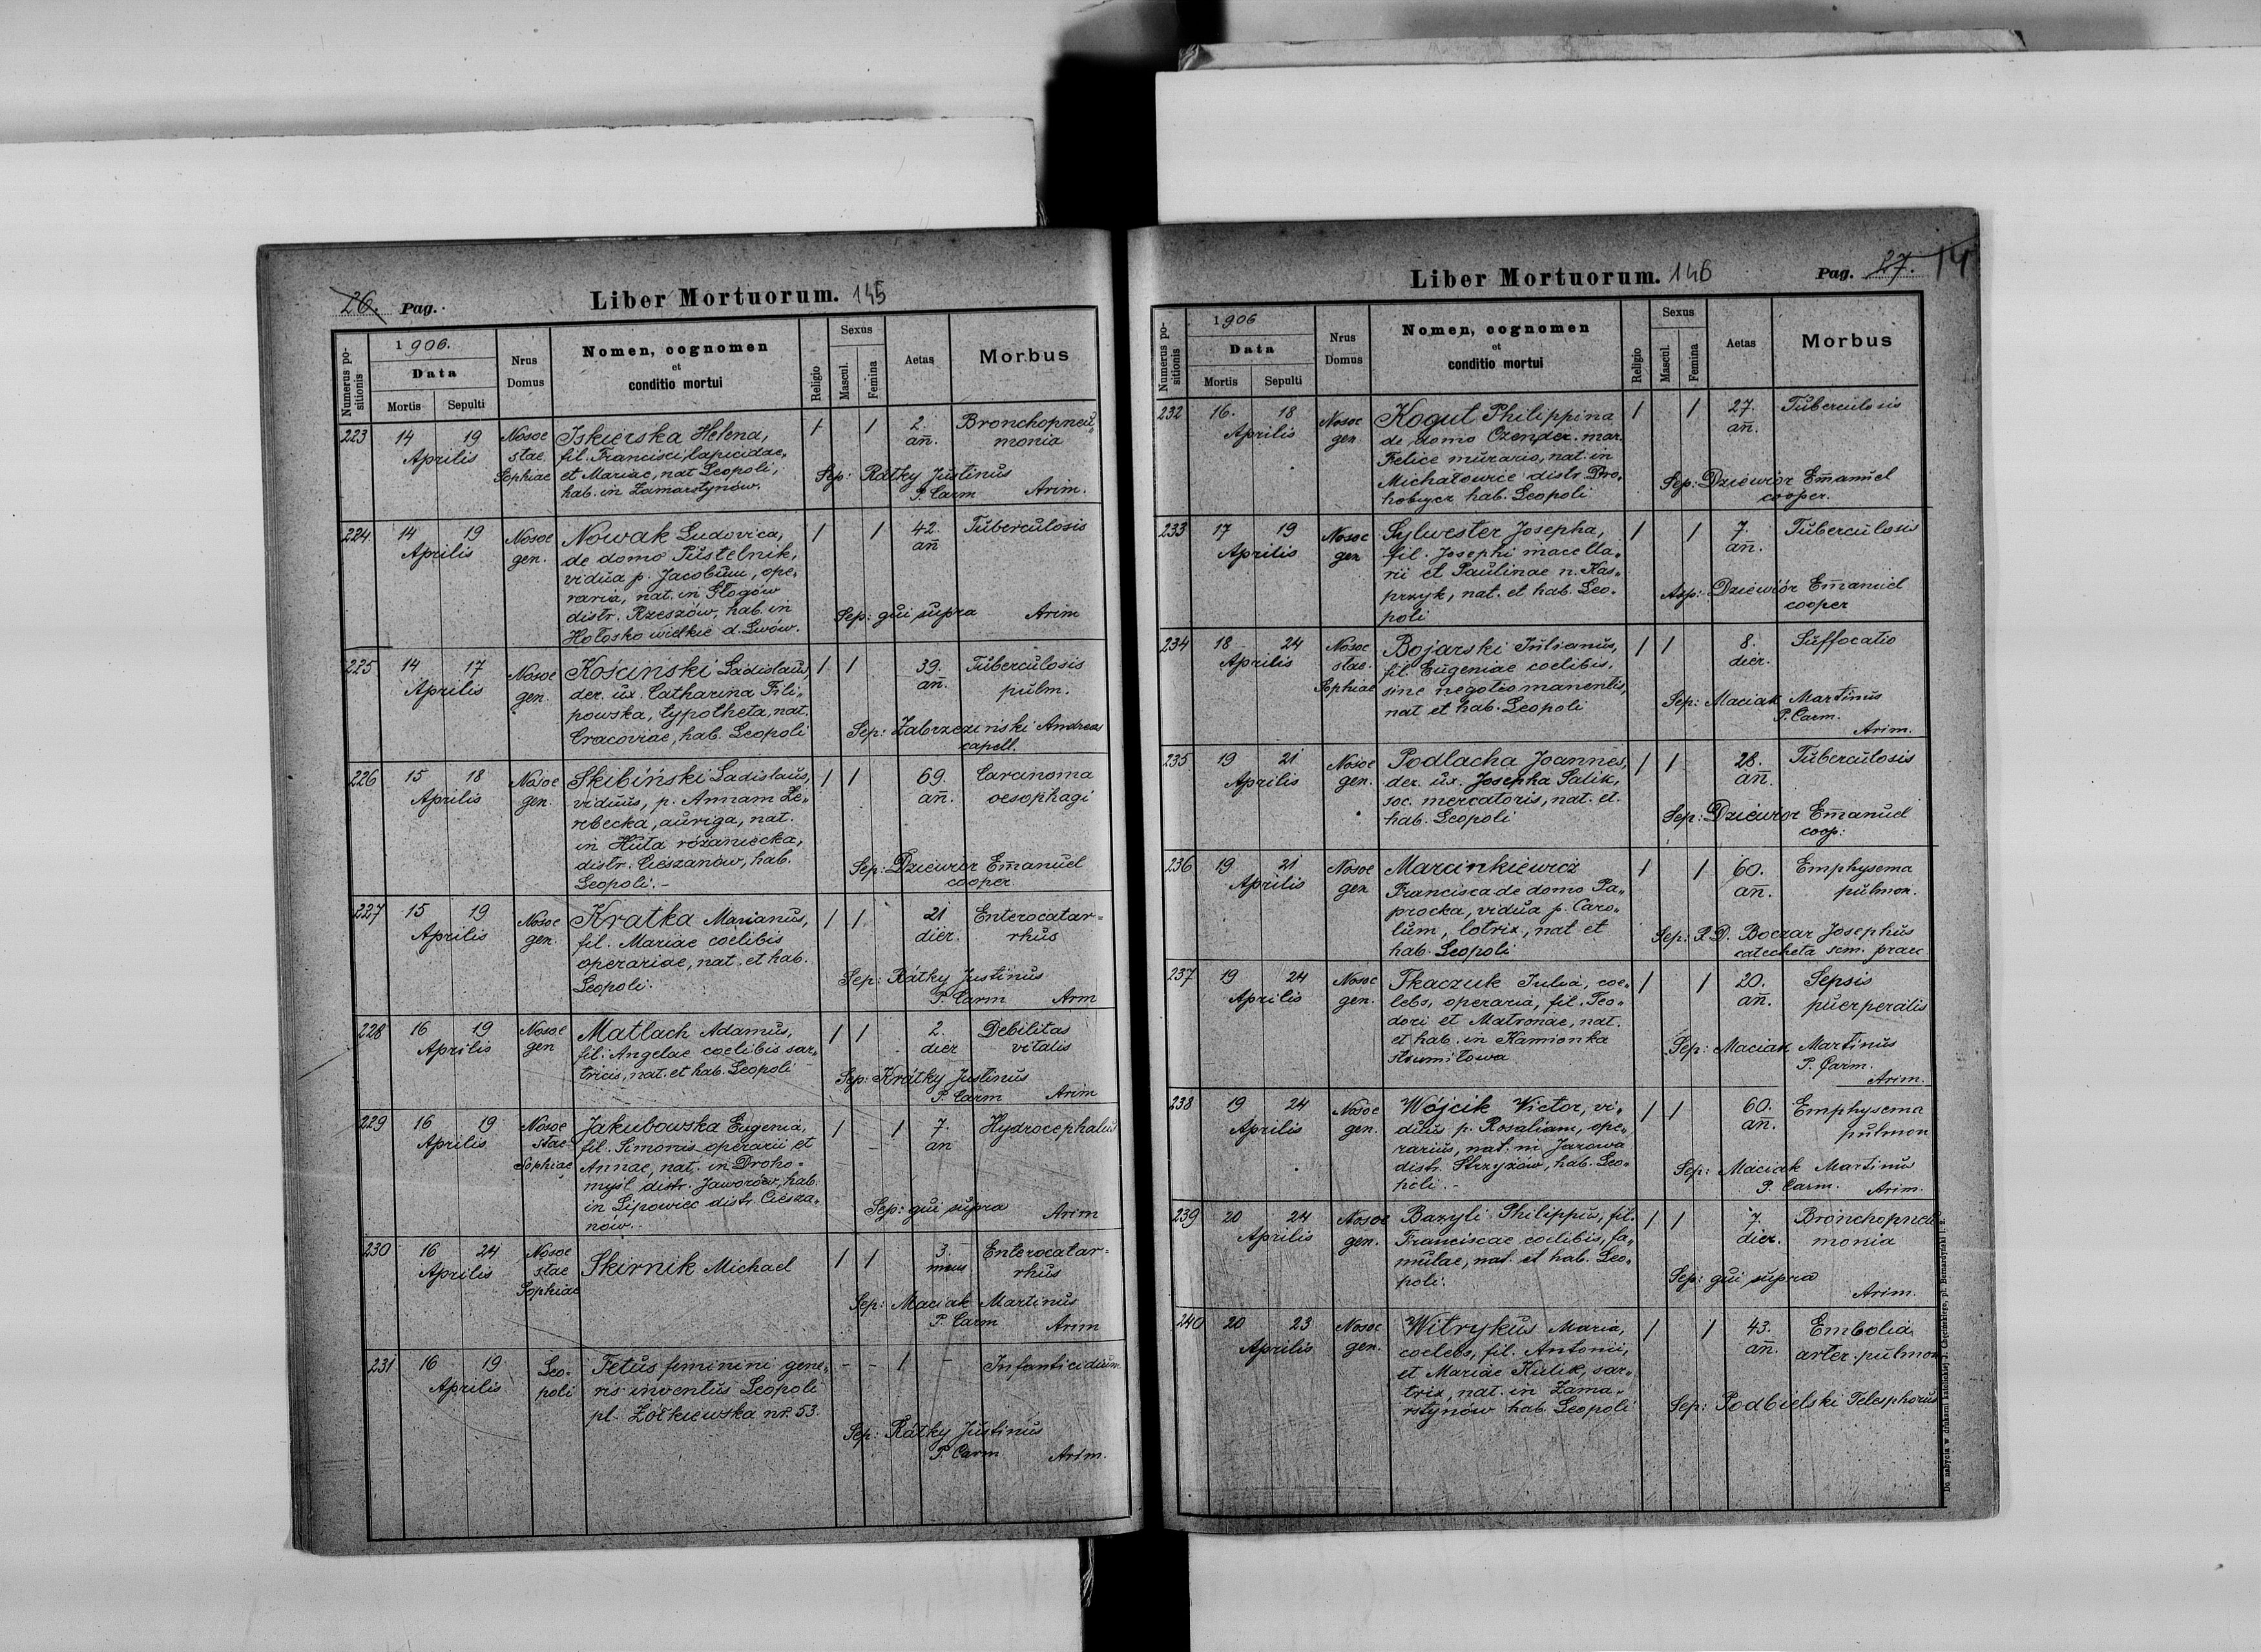 26. Pag.
Liber Mortuorum. 145
Numerus positionis
1906.
Data
Mortis Sepulti
Nrus Domus
Nomen, cognomen
et
conditio mortui
Religio
Sexus
Mascul. Femina
Aetas
Morbus
223 14 19 Nosoc Iskierska Helena, / / 2. Bronchopneu„
Aprilis stae fil. Francisci, lapicidae, an̄. monia
Sophiae et Mariae, nat Leopoli, Sep: Rátky Justinus
hab. in Zamarstynów. P. Carm Arim.
224 14 19 Nosoc Nowak Ludovica, / / 42. Tuberculosis
Aprilis gen. de domo Pustelnik, an̄
vidua p. Jacobum, ope„
raria, nat. in Głogów
distr. Rzeszów, hab. in Sep: qui supra Arim
Hołosko wielkie d. Lwów.
225 14 17 Nosoc Kościnski Ladislaus, / / 39. Tuberculosis
Aprilis gen. der. ux. Catharina Fili„ an̄. pulm.
powska, typotheta, nat. Sep: Zabrzeziński Andreas
Cracoviae, hab. Leopoli capell.
226 15 18 Nosoc Skibiński Ladislaus, / / 69. Carcinoma
Aprilis gen. viduus, p. Annam Le„ an̄. oesophagi
rebecka, auriga, nat.
in Huta różaniecka,
distr. Cieszanów, hab. Sep: Dziewiór Em̄anuel
Leopoli.- cooper
227 15 19 Nosoc Kratka Marianus, / / 21 Enterocatar=
Aprilis gen. fil. Mariae coelibis dier. rhus
operariae, nat. et hab. Sep: Rátky Justinus
Leopoli. P. Carm Arm
228 16 19 Nosoc Matlach Adamus, / / 2. Debilitas
Aprilis gen fil. Angelae coelibis sar„ dier vitalis
tricis, nat. et hab. Leopoli Sep: Krátky Justinus
P. Carm Arim
229 16 19 Nosoc Jakubowska Eugenia, / / 7. Hydrocephalus
Aprilis stae fil. Simonis operarii et an
Sophiae Annae, nat. in Droho=
myśl distr. Jaworów, hab.
in Lipowiec distr. Ciesza„ Sep: qui supra Arim
nów..
230 16 24 Nosoc Skirnik Michael / / 3. Enterocatar=
Aprilis stae mens rhus
Sophiae Sep: Maciak Martinus
P. Carm Arim
231 16 19 Leo- Fetus feminini gene„ - - / - Infanticidium
Aprilis poli ris inventus Leopoli
pl. Żółkiewska nr. 53. Sep: Rátky Justinus
P. Carm Arim.
Liber Mortuorum. 146
Pag. 27. 14
Numerus positionis
1906
Data
Mortis Sepulti
Nrus Domus
Nomen, cognomen
et
conditio mortui
Religio
Sexus
Mascul. Femina
Aetas
Morbus
232 16. 18 Nosoc Kogut Philippina / / 27. Tuberculosis
Aprilis gen. de domo Czender. mar. an̄.
Felice murario, nat. in
Michałowice distr. Dro„ Sep: Dziewiór Em̄anuel
hobycz hab. Leopoli cooper.
233 17 19 Nosoc Sylwester Josepha, / / 7. Tuberculosis
Aprilis gen fil. Josephi macella„ an̄.
rii et Paulinae n. Kas„
przyk, nat. et hab. Leo„ Asp: Dziewiór Em̄anuel
poli cooper
234 18 24 Nosoc Bojarski Julianus, / / 8. Suffocatio
Aprilis stae. fil. Eugeniae coelibis, dier.
Sophiae sine negotio manentis, Sep: Maciak Martinus
nat et hab. Leopoli P. Carm.
Arim.
235 19 21 Nosoc Podlacha Joannes, / / 28. Tuberculosis
Aprilis gen. der. ux. Josepha Salik, an̄.
soc. mercatoris, nat. et. Sep: Dziewiór Em̄anuel
hab. Leopoli coop:
236 19 21 Nosoc Marcinkiewicz / / 60. Emphysema
Aprilis gen Francisca de domo Pa„ an̄. pulmon.
procka, vidua p. Caro„
lum, lotrix, nat et Sep: P. D. Boczar Josephus
hab. Leopoli catecheta sem. praec
237 19 24 Nosoc Tkaczuk Julia, coe„ / / 20. Sepsis
Aprilis gen. lebs, operaria, fil. Teo„ an̄. puerperalis
dori et Matronae, nat.
et hab. in Kamionka Sep: Maciak Martinus
strumiłowa P. Carm.
Arim.
238 19 24 Nosoc Wójcik Victor, vi„ / / 60. Emphysema
Aprilis gen. duus p. Rosaliam, ope„ an. pulmon
rarius, nat. in Jarowa
distr. Strzyżów, hab. Leo„ Sep: Maciak Martinus
poli.- P. Carm. Arim.
239 20 24 Nosoc Bazyli Philippus, fil. / / 7. Bronchopneu
Aprilis gen. Franciscae coelibis, fa„ dier. monia
mulae, nat. et hab. Leo„ Sep: qui supra
poli. Arim.
240 20 23 Nosoc Witrykus Maria, / / 43. Embolia
Aprilis gen. coelebs, fil. Antonii, an̄. arter. pulmon
et Mariae Kulik, sar„
trix, nat. in Zama„ Sep: Podbielski Telesphorus
rstynów hab. Leopoli
Do nabycia w drukarni katolickiej J. Chęcińskiego, pl. Bernardyński l. 2.